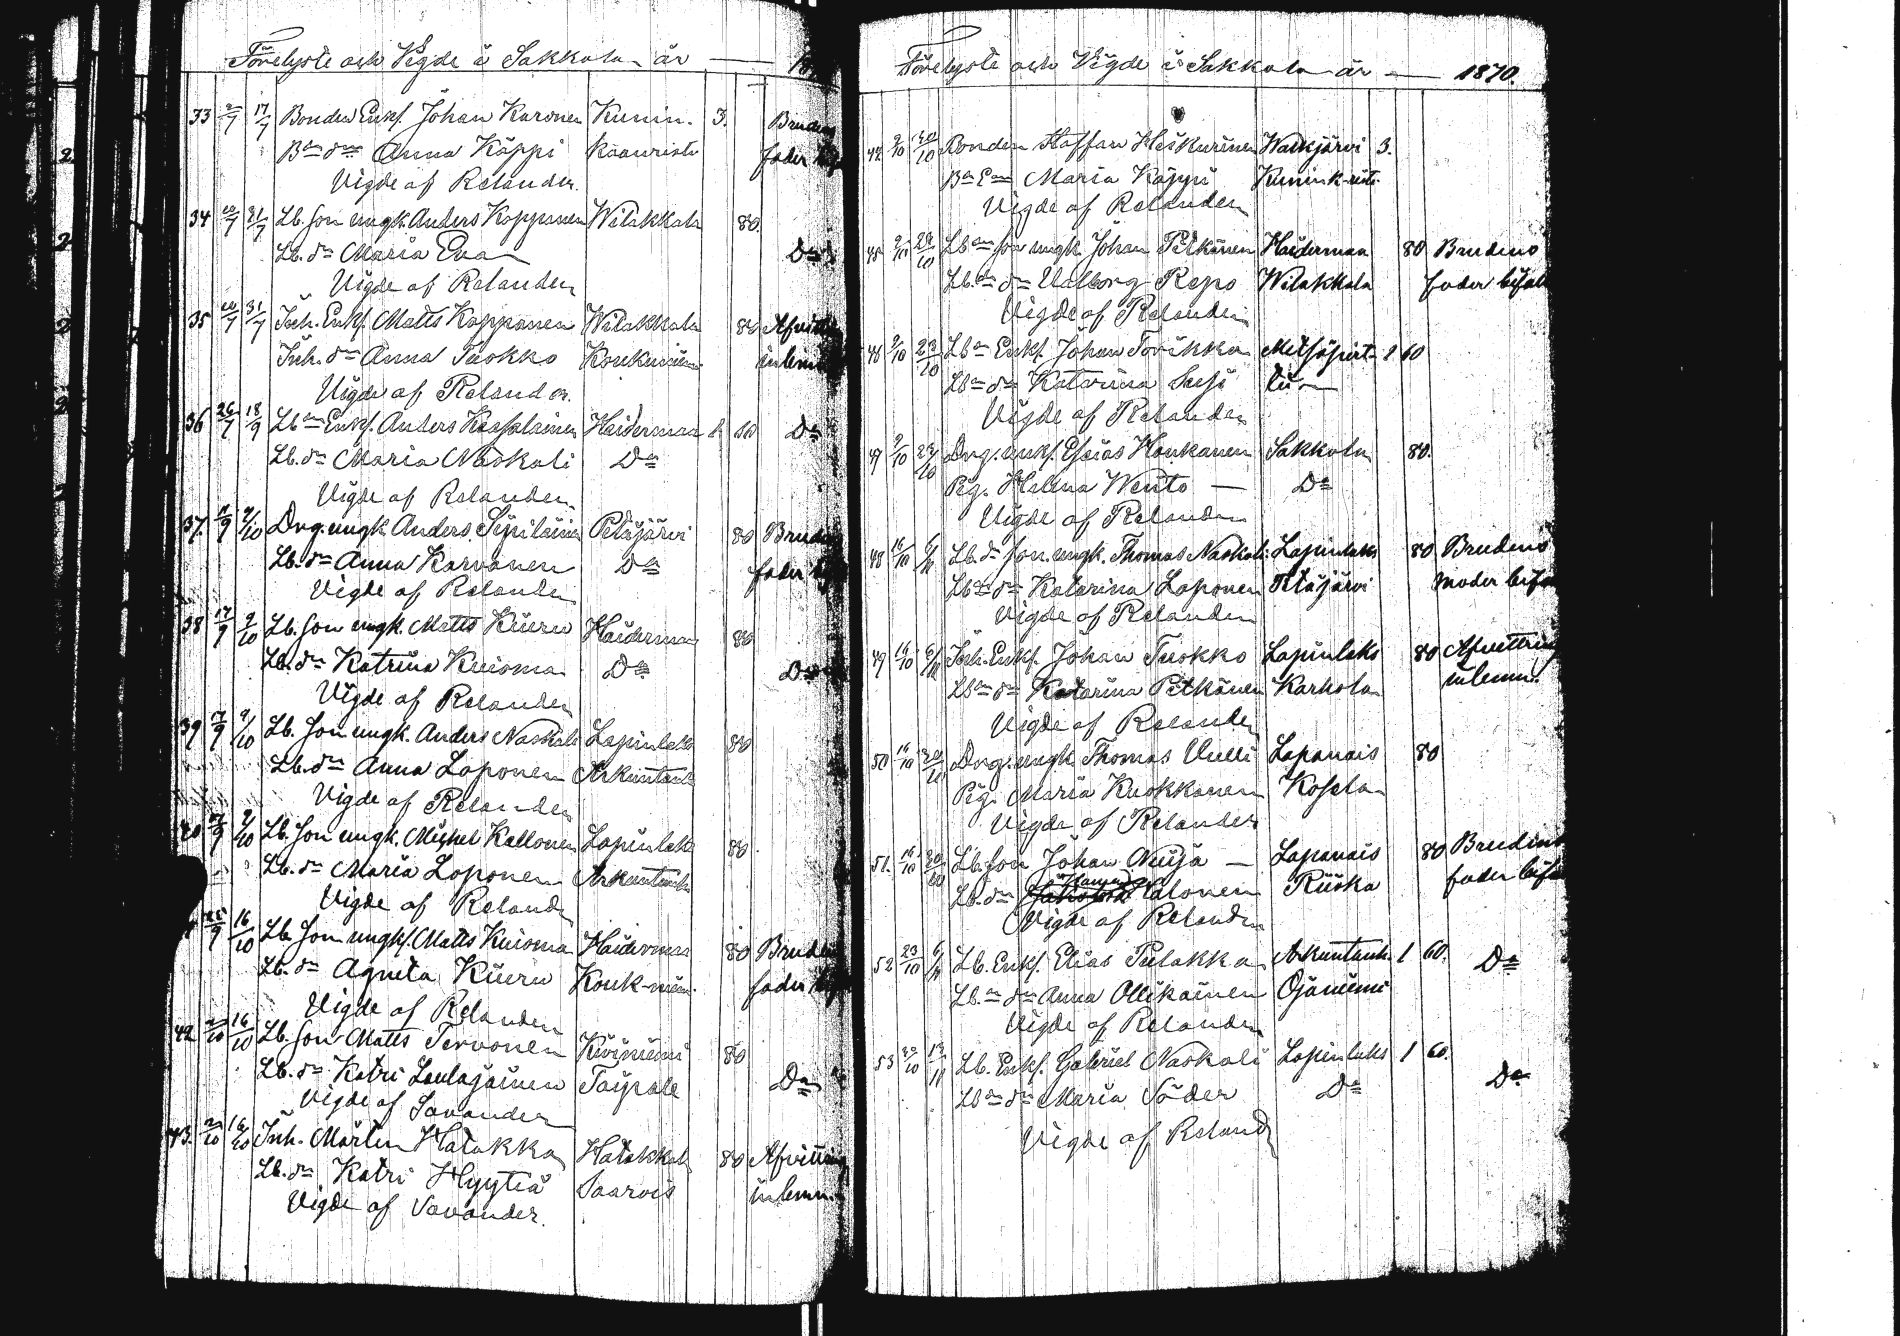 Förelyste och Vigde i Sakkola år — 18
33 2/7 17/7 Bonden Enkf. Johan Karonen Kunin- 3. Brudens
Bdn dtr Anna Käppi kaanristi fader
Vigde af Relander.
34 10/7 31/7 Lb. son ungk. Anders Kopponen Wilakkala 80.
Lb. dr Maria Eva Do
Vigde af Relander
35 10/7 31/7 Inh. Enkf. Matts Kopponen Wilakkala 80 Afvittr
Inh. dr Anna Tuokko Koukuniemi inlemn
Vigde af Relander.
36 26/7 18/9 Lbm Enkf. Anders Kossolainen Haiderman 1 60 Do
Lb. dr Maria Naskali Do
Vigde af Relander
37. 11/9 2/10 Drg. ungk Anders Sipiläinen Petäjärvi 80 Brudens
Lb. dr Anna Karvonen Do fader
Vigde af Relander
38 17/9 2/10 Lb. son ungk. Matts Kiuru Haiderman 80
Lb. dr Katrina Kuisma Do Do
Vigde af Relander
39 17/9 9/10 Lb. son ungk. Anders Naskali Lapinlaks 80
Lb. dr Anna Loponen Arkuntanh
Vigde af Relander
40 17/9 9/10 Lb. son ungk. Michel Kallonen Lapinlaks 80.
Lb. dr Maria Loponen Arkuntanh
Vigde af Relander
25/9 16/10 Lb son ungkf. Matts Kuisma Haiderman 80 Brudens
Lb. dr Agneta Kiuru Kouk-niem. fader
Vigde af Relander
42 2/10 16/10 Lb. son Matts Tervonen Kiviniemi 80
Lb. dr Katri Loulajainen Taipale Do
Vigde af Savander
43. 2/10 16/10 Inh. Mårten Hatakka Hatakkala 80 Afvittring
Lb. dr Katri Hyytiä Saarois inlemn.
Vigde af Savander.
Förelyste och Vigde i Sakkola år — 1870.
44 9/10 30/10 Bonden Staffan Heiskurinen Walkjärvi 3.
Bdn Enk Maria Käppi Kunink-risti
Vigde af Relander
45 9/10 23/10 Lbm son ungk. Johan Pitkänen Haiderman 80 Brudens
Lbm dr Valborg Repo Wilakkala fader bifall
Vigde af Relander
46 9/10 23/10 Lbm Enkf. Johan Torikka Metsäpirt- 1 60
Lbm dr Katrina Susi ti
Vigde af Relander
47 9/10 23/10 Drg. ungk. Esaias Honkanen Sakkola 80.
Pig. Helena Wento — Do
Vigde af Relander
48 16/10 6/11 Lb. son. ungk. Thomas Naskali Lapinlaks 80 Brudens
Lbm dr Katarina Loponen Petäjärvi moder bifa
Vigde af Relander
49 16/10 6/11 Inh. Enkf. Johan Tuokko Lapinlaks 80 Afvittring
Lbm dr Katarina Pitkänen Karhola inlemn.
Vigde af Relander
50 16/10 30/10 Drg. ungk Thomas Vulli Lapanais 80
Pig. Maria Kuokkanen Kosela
Vigde af Relander
51. 16/10 30/10 Lb. son Johan Neuja — Lapanais 80 Brudens
Lb. dr Valonen Riiska fader bifa
Vigde af Relander
52 23/10 6/11 Lb. Enkf. Elias Pulakka Arkuntanh. 1 60. Do
Lb. m dr Anna Ollikainen Ojaniemi
Vigde af Relander
53 30/10 13/11 Lb. Enkf. Gabriel Naskali Lapinlaks 1 60.
Lbm dr Maria Söder Do Do
Vigde af Reland